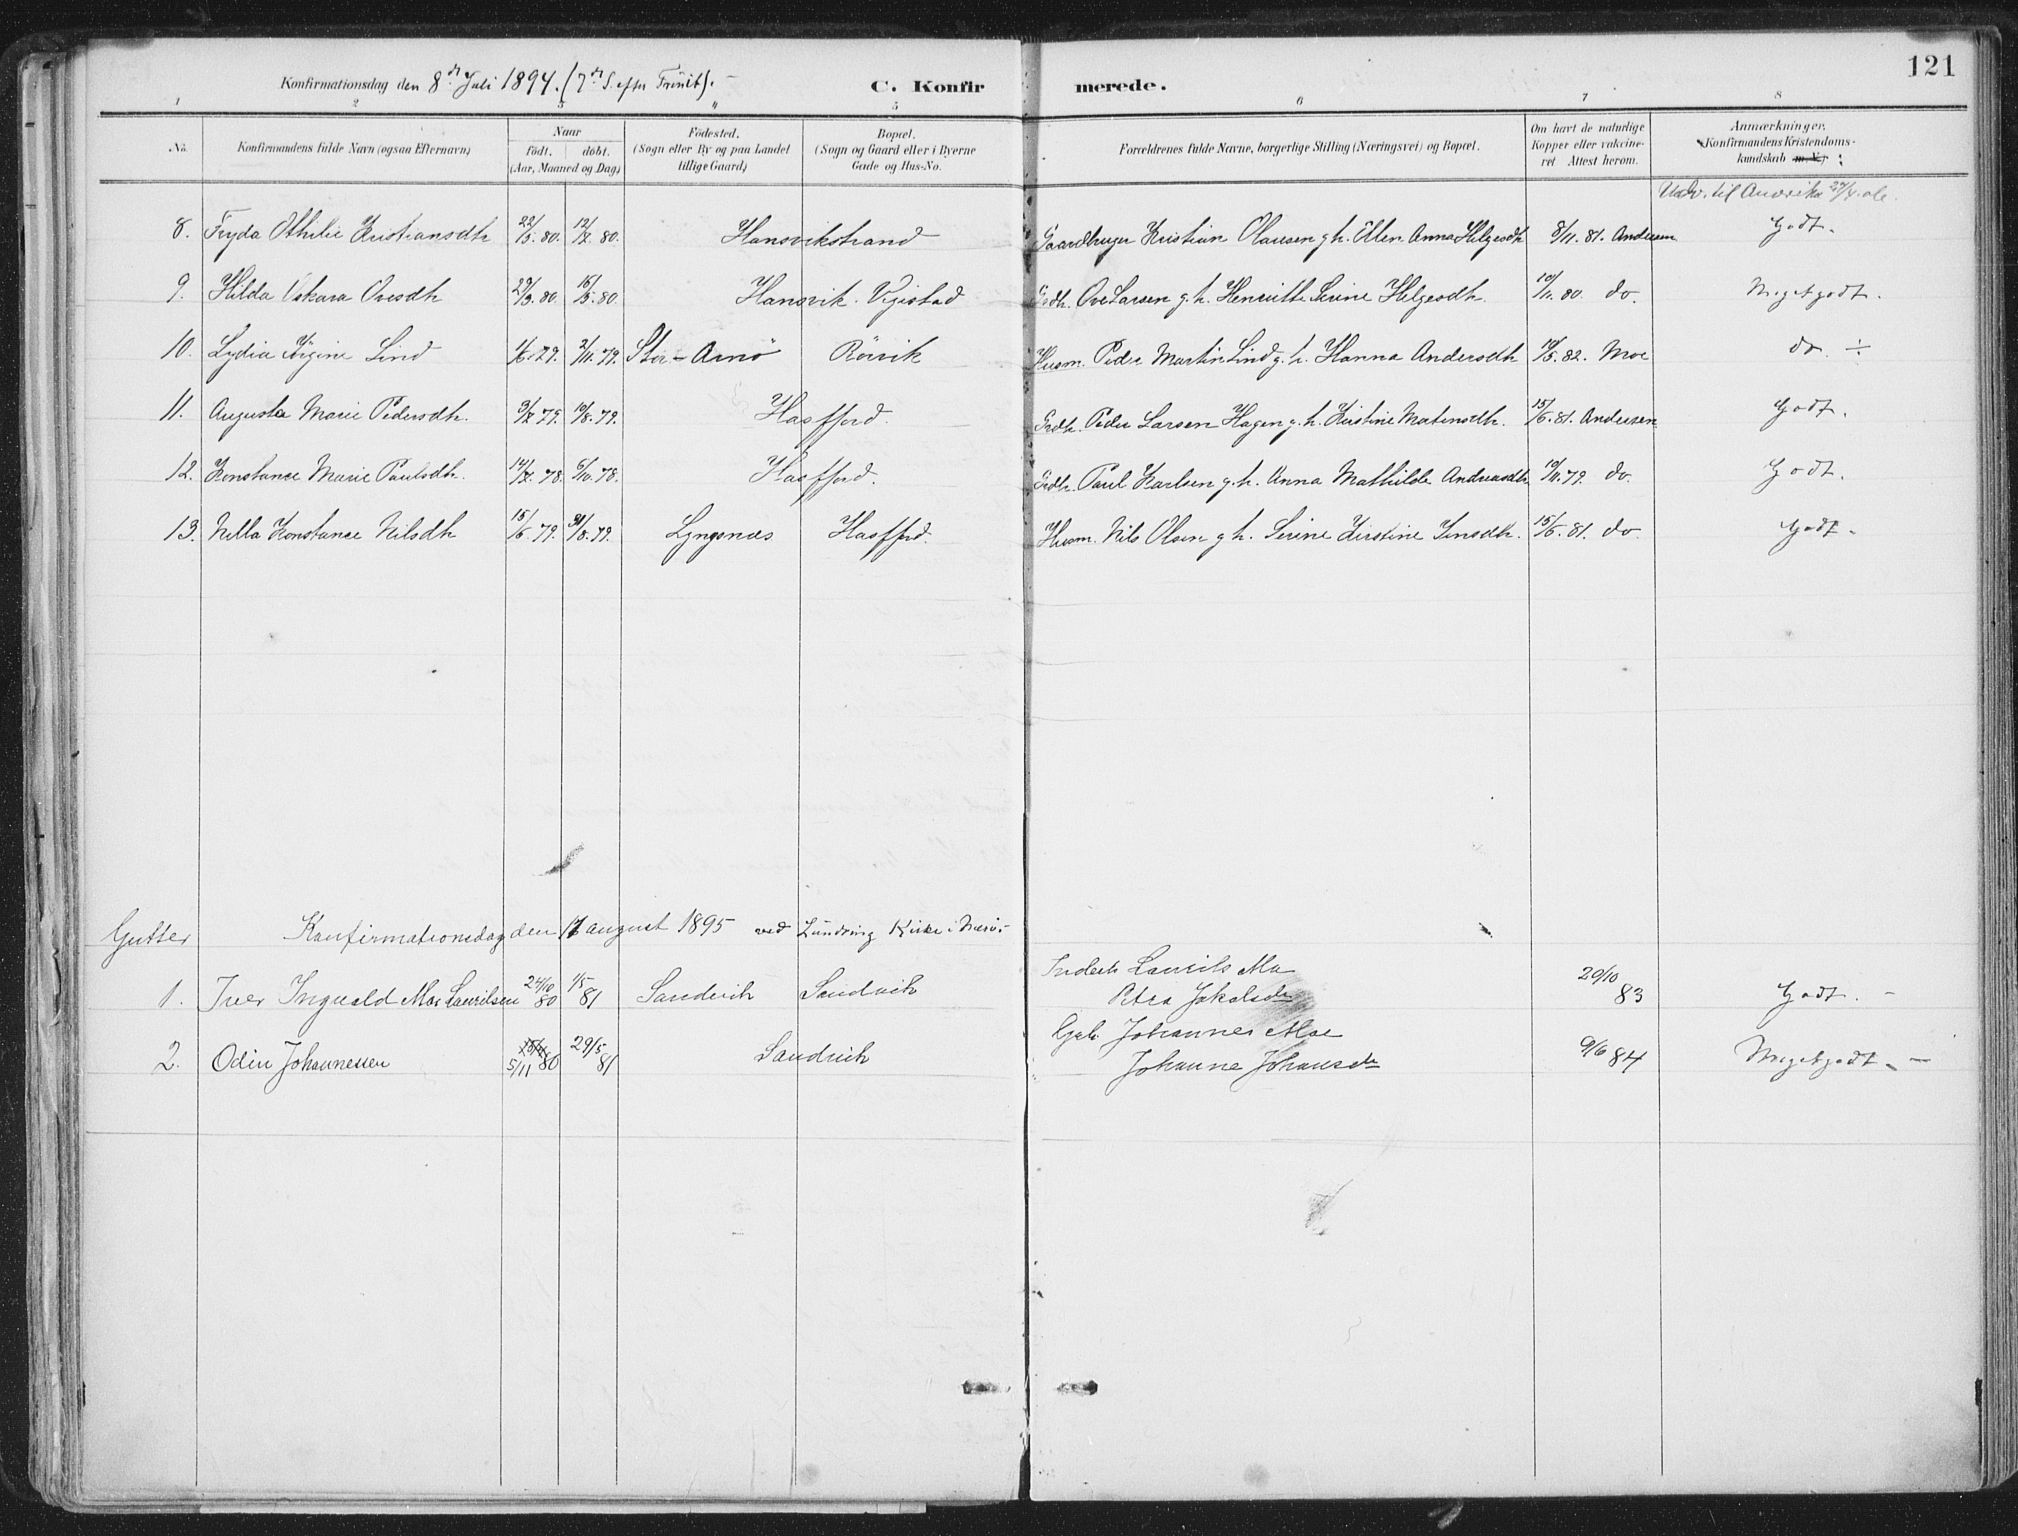 121
Konfirmationsdag den 8de Juli 1894. (7de S. efter Trinit). C. Konfirmerede.
1 2 3 4 5 6 7 8
No.
Konfirmandens fulde Navn (ogsaa Efternavn)
Naar født. døbt. (Aar, Maaned og Dag)
Fødested. (Sogn eller By og paa Landet tillige Gaard)
Bopæl. (Sogn og Gaard eller i Byerne Gade og Hus-No.
Forældrenes fulde Navne, borgerlige Stilling (Næringsvei) og Bopæl.
Om havt de naturlige Kopper eller vakcineret Attest herom.
Anmærkninger. Konfirmandens Kristendomskundskab m. V.) :
Udv. til Amerika
8. Fryda Othilie Kristiansdtr 22/5.80. 12/7.80. Hansvikstrand Gaardbruger Kristian Olausen g. h. Ellen Anna Helgesdtr 8/11.81. Andersen Godt.
9. Hilda Oskara Ovesdtr 29/3.80. 16/5.80. Hansvik Vigestad Grdb. Ove Larsen g. h. Henriette Serine Helgesdtr. 10/11.80. do. Meget godt.
10. Lydia Jørgine Lind 1/6.79. 2/11.79. Stor-Arnø Rörvik Husm. Peder Martin Lind g. h. Hanna Andersdtr 14/5.82. Moe do. ÷
11. Augusta Marie Pedersdtr. 9/7.79. 10/8.79. Hasfjord. Grdb. Peder Larsen Hagen g. h. Kirstine Martensdtr. 15/6.81. Andersen Godt.
12. Konstance Marie Paulsdtr. 14/7.78. 6/10.78. Hasfjord. Grdb. Paul Karlsen g. h. Anna Mathilde Andreasdtr. 10/11.79. do. Godt.
13. Nilla Konstance Nilsdtr 15/6.79. 31/8.79. Lyngsnæs Hasfjrd. Husm. Nils Olsen g. h. Serine Kirstine Jensdtr. 15/6.81. do. Godt.
Gutter Konfirmationsdag den 17 august 1895 ved Lundring Kirke i Nærø.
1. Iver Ingvald Moe Lauritsen 24/10 80 1/5 81 Sandvik Sandvik Laurits Moe 29/10 83 Godt.
Petra Jakobsdtr
2. Odin Johannessen 5/11 80 29/5 81 Sandvik Gdb. Johannes Moe 9/6 84 Meget godt.
Johanne Johansdtr